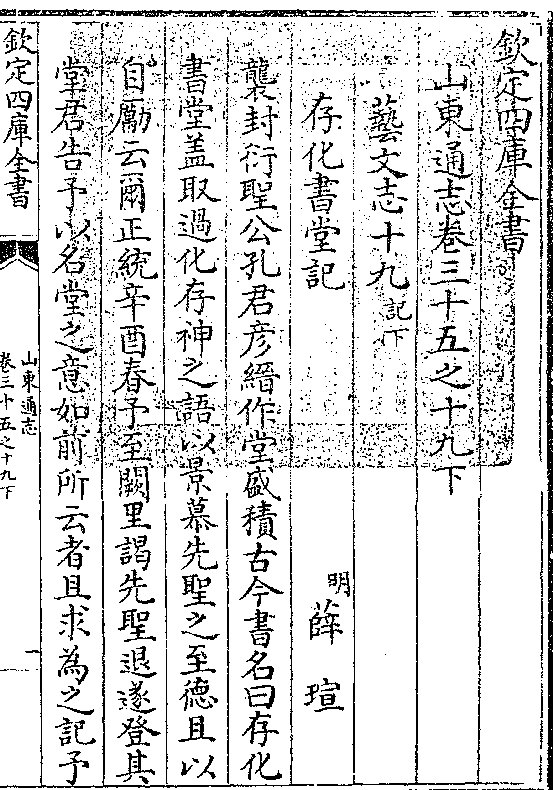 欽定四庫全書
山東通志卷三十五之十九下
藝文志十九記下
存化書堂記
明薛瑄
襲封衍聖公孔君彦縉作堂盛積古今書名曰存化
書堂盖取過化存神之語以景慕先聖之至德且以
自勵云爾正統辛酉春予至闕里謁先聖退遂登其
堂君告予以名堂之意如前所云者且求為之記予
欽定四庫全書
山東通志
卷三十五之十九下
一